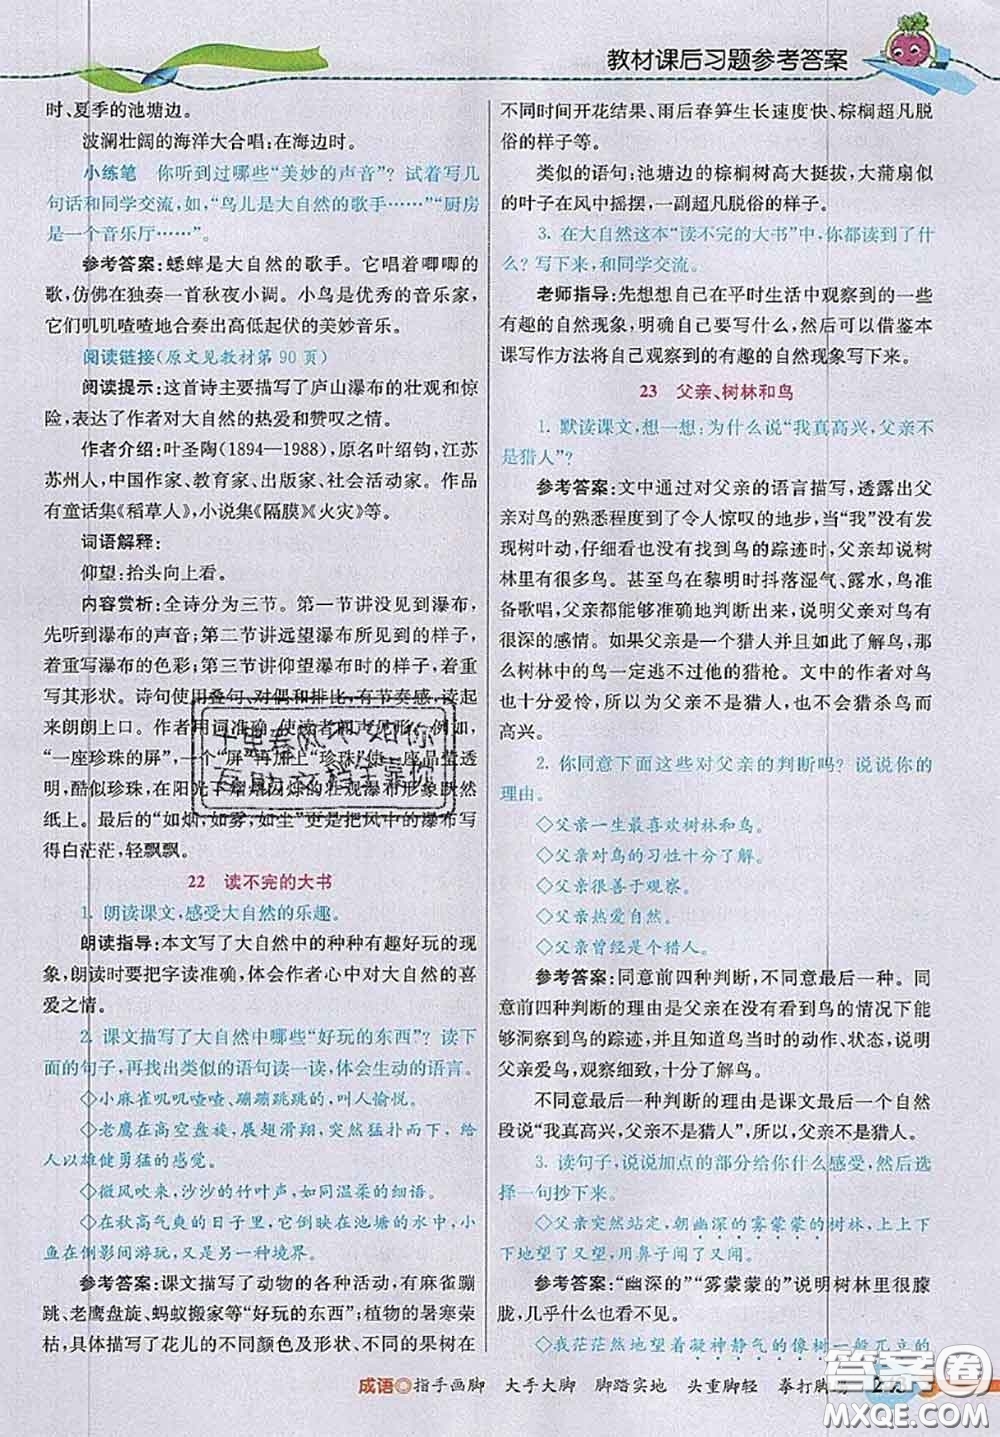 教材课后习题参考答案
时、夏季的池塘边。
波澜壮阔的海洋大合唱:在海边时。
小练笔 你听到过哪些“美妙的声音”?试着写几
句话和同学交流,如,“鸟儿是大自然的歌手……”“厨房
是一个音乐厅……”。
参考答案:蟋蟀是大自然的歌手。它唱着唧唧的
歌,仿佛在独奏一首秋夜小调。小鸟是优秀的音乐家,
它们叽叽喳喳地合奏出高低起伏的美妙音乐。
阅读链接(原文见教材第90页)
阅读提示:这首诗主要描写了庐山瀑布的壮观和惊
险,表达了作者对大自然的热爱和赞叹之情。
作者介绍:叶圣陶(1894—1988),原名叶绍钧,江苏
苏州人,中国作家、教育家、出版家、社会活动家。作品
有童话集《稻草人》,小说集《隔膜》《火灾》等。
词语解释:
仰望:抬头向上看。
内容赏析:全诗分为三节。第一节讲没见到瀑布,
先听到瀑布的声音;第二节讲远望瀑布时的样子,着
着重写瀑布的色彩;第三节讲仰望瀑布时的样子,着重
写其形状。诗句使用叠句、对偶和排比,有节奏感,读起
来朗朗上口。作者用词准确,使读者如见其形。例如,
“一座珍珠的屏”,一个“屏”再加上“珍珠”,使一座晶莹透明,
酷似珍珠,在阳光下熠熠闪烁的瀑布形象跃然
纸上。最后的“如烟,如雾,如尘”更是把风中的瀑布写
得白茫茫,轻飘飘。
22 读不完的大书
1. 朗读课文,感受大自然的乐趣。
朗读指导:本文写了大自然中的种种有趣好玩的现
象,朗读时要把字读准确,体会作者心中对大自然的喜
爱之情。
2. 课文描写了大自然中哪些“好玩的东西”?读下
面的句子,再找出类似的语句读一读,体会生动的语言。
◇小麻雀叽叽喳喳、蹦蹦跳跳的,叫人愉悦。
◇老鹰在高空盘旋,展翅滑翔,突然猛扑下来,给
人以雄健勇猛的感觉。
◇微风吹来,沙沙的竹叶声,如同温柔的细语。
◇在秋高气爽的日子里,它倒映在池塘的水中,小
鱼在倒影间游玩,又是另一种境界。
参考答案:课文描写了动物的各种活动,有麻雀蹦
跳、老鹰盘旋、蚂蚁搬家等“好玩的东西”;植物的暑寒荣
枯,具体描写了花儿的不同颜色及形状、不同的果树在
不同时间开花结果、雨后春笋生长速度快、棕榈超凡脱
俗的样子等。
类似的语句:池塘边的棕榈树高大挺拔,大蒲扇似
的叶子在风中摇摆,一副超凡脱俗的样子。
3. 在大自然这本“读不完的大书”中,你都读到了什
么?写下来,和同学交流。
老师指导:先想想自己在平时生活中观察到的一些
有趣的自然现象,明确自己要写什么,然后可以借鉴本
课写作方法将自己观察到的有趣的自然现象写下来。
23 父亲、树林和鸟
1. 默读课文,想一想:为什么说“我真高兴,父亲不
是猎人”?
参考答案:文中通过对父亲的语言描写,透露出父
亲对鸟的熟悉程度到了令人惊叹的地步,当“我”没有发
现树叶动,仔细看也没有找到鸟的踪迹时,父亲却说树
林里有很多鸟。甚至鸟在黎明时抖落湿气、露水,鸟准
备歌唱,父亲都能够准确地判断出来,说明父亲对鸟有
很深的感情。如果父亲是一个猎人又如此了解鸟,那
么树林中的鸟一定逃不过他的猎枪。文中的作者对鸟
也十分爱怜,所以为父亲不是猎人、不会猎杀鸟而
高兴。
2. 你同意下面这些对父亲的判断吗?说说你的
理由。
◇父亲一生最喜欢树林和鸟。
◇父亲对鸟的习性十分了解。
◇父亲很善于观察。
◇父亲热爱自然。
◇父亲曾经是个猎人。
参考答案:同意前四种判断,不同意最后一种。同
意前四种判断的理由是父亲在没有看到鸟的情况下能
够洞察到鸟的踪迹,并知道鸟当时的动作、状态,说明
父亲爱鸟,观察细致,十分了解鸟。
不同意最后一种判断的理由是课文最后一个自然
段说“我真高兴,父亲不是猎人”,所以,父亲不是猎人。
3. 读句子,说说加点的部分给你什么感受,然后选
择一句抄下来。
◇父亲突然站定,朝幽深的雾蒙蒙的树林,上上下
下地望了又望,用鼻子闻了又闻。
参考答案:“幽深的”“雾蒙蒙的”说明树林里很朦
胧,几乎什么也看不见。
◇我茫茫然地望着凝神静气的像树一般兀立的
成语◎指手画脚 大手大脚 脚踏实地 头重脚轻 拳打脚
十里春风不如你
互助文档主靠你
答案圈
MXQE.COM